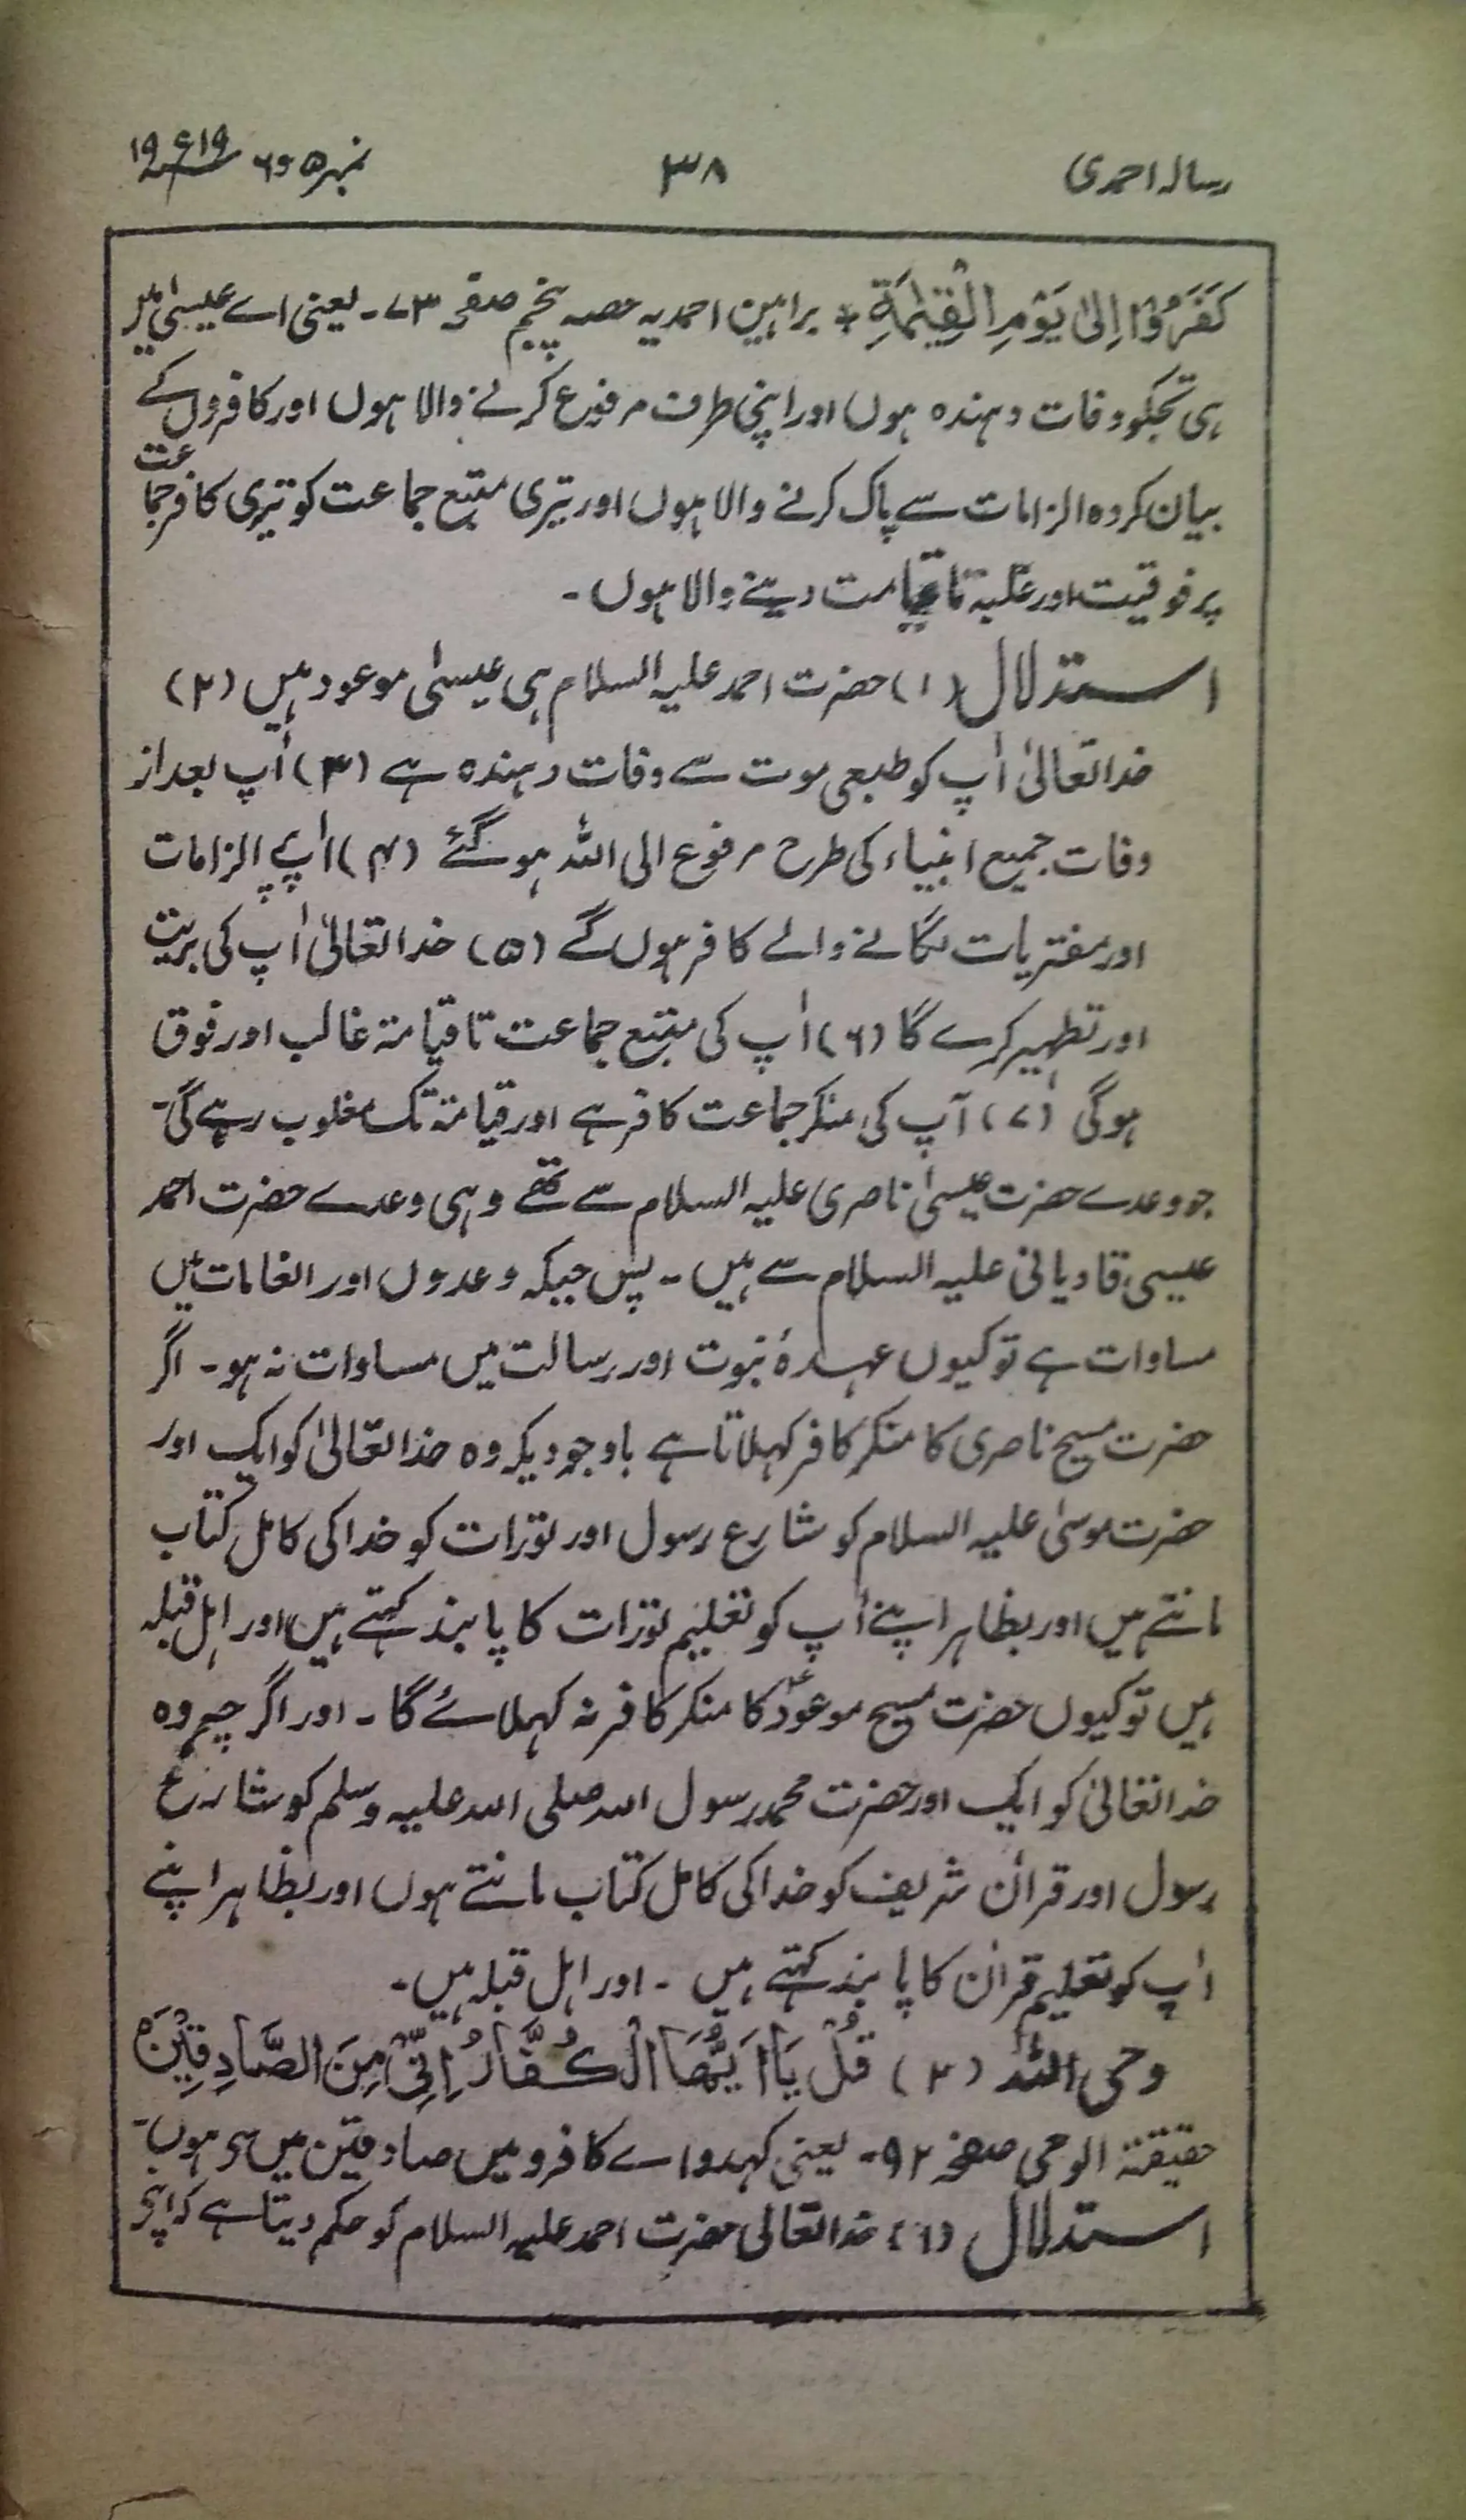 رسالہ احمدی ۳۸ نمبر ۵ و ۶ ۱۹۱۹ء
كَفَرُوْا اِلٰى يَوْمِ الْقِيٰمَةِ + براہین احمدیہ حصہ پنجم صفحہ ۷۳ - یعنی اے عیسیٰ میں
ہی تجکو وفات دہندہ ہوں اور اپنی طرف مرفوع کرنے والا ہوں اور کافروں کے
بیان کردہ الزامات سے پاک کرنے والا ہوں اور تیری متبع جماعت کو تیری کافر جماعت
پر فوقیت اور غلبہ تا قیامت دینے والا ہوں -
استدلال (۱) حضرت احمد علیہ السلام ہی عیسیٰ موعود ہیں (۲)
خدا تعالیٰ اٰپ کو طبعی موت سے وفات دہندہ ہے (۳) اٰپ بعد از
وفات جمیع انبیاء کی طرح مرفوع الی اللہ ہو گئے (۴) اٰپ پر الزامات
اور مفتریات لگانے والے کافر ہوں گے (۵) خدا تعالیٰ اٰپ کی بریت
اور تطہیر کرے گا (۶) اٰپ کی متبع جماعت تا قیامۃ غالب اور فوق
ہو گی (۷) آپ کی منکر جماعت کافر ہے اور قیامۃ تک مغلوب رہے گی -
جو وعدے حضرت عیسیٰ ناصری علیہ السلام سے تھے وہی وعدے حضرت احمد
عیسی قادیانی علیہ السلام سے ہیں - پس جبکہ وعدوں اور انعامات میں
مساوات ہے تو کیوں عہدۂ نبوت اور رسالت میں مساوات نہ ہو - اگر
حضرت مسیح ناصری کا منکر کافر کہلاتا ہے باوجودیکہ وہ خدا تعالیٰ کو ایک اور
حضرت موسیٰ علیہ السلام کو شارع رسول اور تورات کو خدا کی کامل کتاب
مانتے ہیں اور بظاہر اپنے اٰپ کو تعلیم تورات کا پابند کہتے ہیں اور اہل قبلہ
ہیں تو کیوں حضرت مسیح موعودؑ کا منکر کافر نہ کہلائے گا - اور اگر چہ وہ
خدا تعالیٰ کو ایک اور حضرت محمد رسول اللہ صلی اللہ علیہ وسلم کو شارع
رسول اور قراٰن شریف کو خدا کی کامل کتاب مانتے ہوں اور بظاہر اپنے
اٰپ کو تعلیم قراٰن کا پابند کہتے ہیں - اور اہل قبلہ ہیں -
وحی اللہ (۲) قُلْ يَا اَيُّهَا الْكُفَّارُ اِنِّيْ مِنَ الصَّادِقِيْنَ ہ
حقیقۃ الوحی صفحہ ۹۲ - یعنی کہدو اے کافرو میں صادقین میں سے ہوں -
استدلال (۱) خدا تعالی حضرت احمد علیہ السلام کو حکم دیتا ہے کہ اپنے